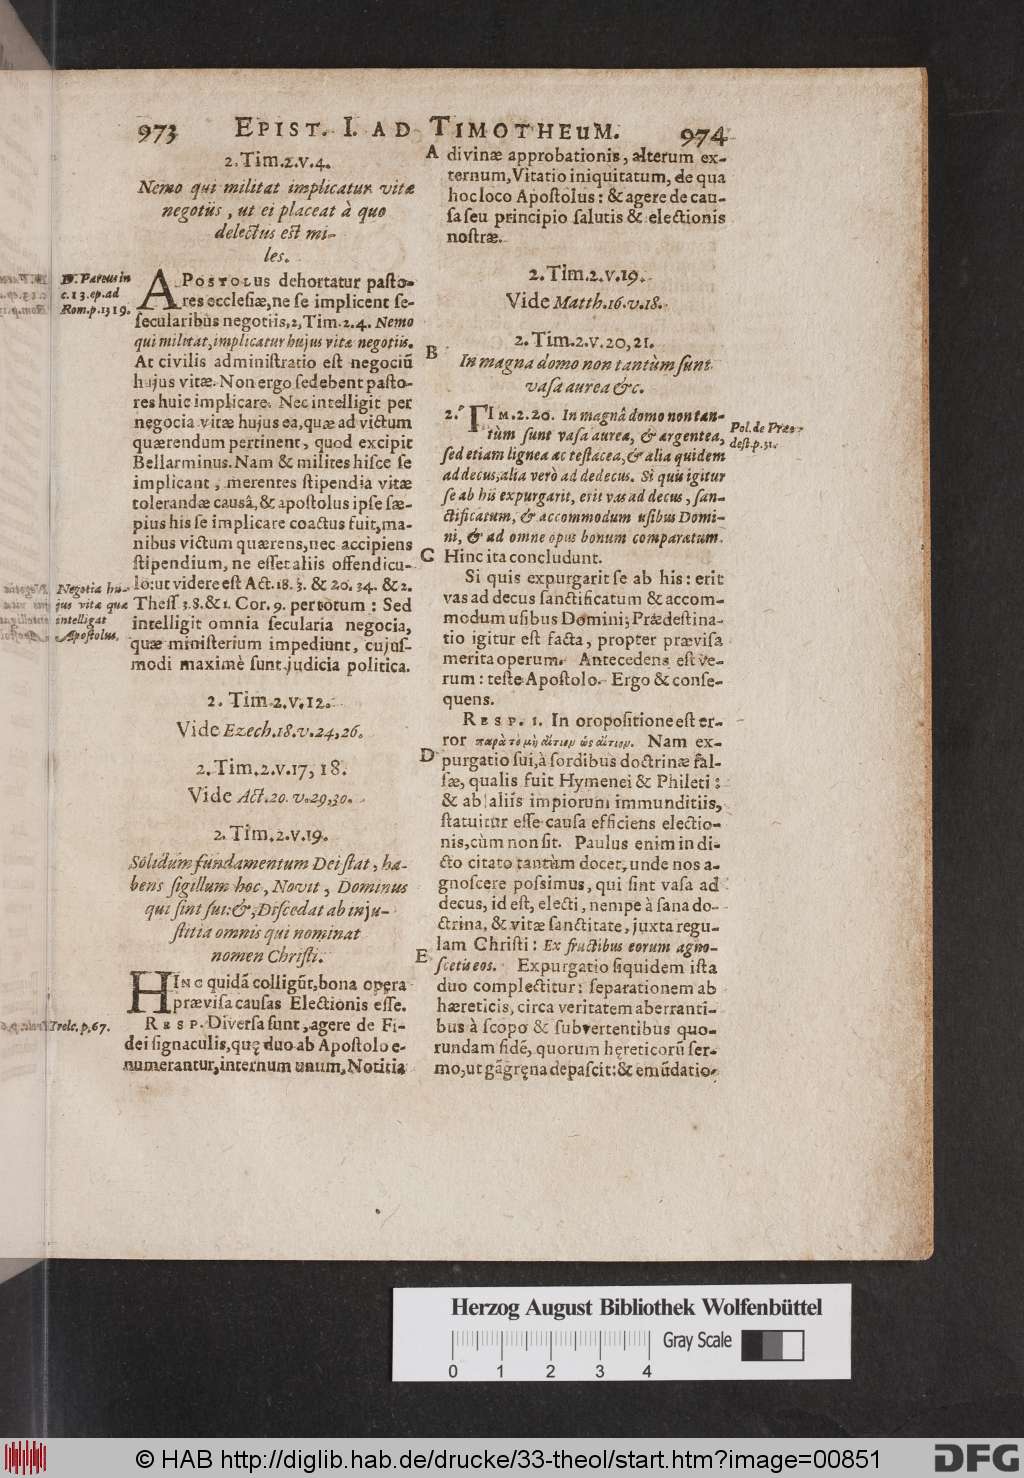 973 EPIST. I. AD TIMOTHEUM. 974
2. Tim. 2. v. 4.
Nemo qui militat implicatur vitæ
negotiis, ut ei placeat à quo
delectus est mi-
les.
D. Pareus in
c. 13. ep. ad
Rom. p. 1319.
APOSTOLUS dehortatur pasto-
res ecclesiæ, ne se implicent se-
secularibus negotiis, 2, Tim. 2. 4. Nemo
qui militat, implicatur hujus vitæ negotiis.
At civilis administratio est negociū
hujus vitæ. Non ergo se debent pasto-
res huic implicare. Nec intelligit per
negocia vitæ hujus ea, quæ ad victum
quærendum pertinent, quod excipit
Bellarminus. Nam & milites hisce se
implicant, merentes stipendia vitæ
tolerandæ causâ, & apostolus ipse sæ-
pius his se implicare coactus fuit, ma-
nibus victum quærens, nec accipiens
stipendium, ne esset aliis offendicu-
lo: ut videre est Act. 18. 3. & 20. 34. & 2.
Thess 3. 8. & 1. Cor. 9. per totum: Sed
intelligit omnia secularia negocia,
quæ ministerium impediunt, cujus-
modi maximè sunt judicia politica.
Negotia hu-
jus vitæ quæ
intelligat
Apostolus.
2. Tim. 2. v. 12.
Vide Ezech. 18. v. 24, 26.
2. Tim. 2. v. 17, 18.
Vide Act. 20. v. 29, 30.
2. Tim. 2. v. 19.
Solidum fundamentum Dei stat, ha-
bens sigillum hoc, Novit, Dominus
qui sint sui: &, Discedat ab inju-
stitia omnis qui nominat
nomen Christi.
HINC quidā colligūt, bona opera
prævisa causas Electionis esse.
Trelc. p. 67.
RESP. Diversa sunt, agere de Fi-
dei signaculis, quę duo ab Apostolo e-
numerantur, internum unum, Notitia
A divinæ approbationis, alterum ex-
ternum, Vitatio iniquitatum, de qua
hoc loco Apostolus: & agere de cau-
sa seu principio salutis & electionis
nostræ.
2. Tim. 2. v. 19.
Vide Matth. 16. v. 18.
2. Tim. 2. v. 20, 21.
B In magna domo non tantùm sunt
vasa aurea &c.
2. TIM. 2. 20. In magnâ domo non tan-
tùm sunt vasa aurea, & argentea,
sed etiam lignea ac testacea, & alia quidem
ad decus, alia verò ad dedecus. Si quis igitur
se ab his expurgarit, erit vas ad decus, san-
ctificatum, & accommodum usibus Domi-
ni, & ad omne opus bonum comparatum.
Pol. de Præ-
dest. p. 51.
C Hinc ita concludunt.
Si quis expurgarit se ab his: erit
vas ad decus sanctificatum & accom-
modum usibus Domini; Prædestina-
tio igitur est facta, propter prævisa
merita operum. Antecedens est ve-
rum: teste Apostolo. Ergo & conse-
quens.
RESP. 1. In oropositione est er-
ror παρὰ τὸ μὴ αἴτιον ὡς αἴτιον. Nam ex-
D purgatio sui, à sordibus doctrinæ fal-
sæ, qualis fuit Hymenei & Phileti:
& ab aliis impiorum immunditiis,
statuitur esse causa efficiens electio-
nis, cùm non sit. Paulus enim in di-
cto citato tantùm docet, unde nos a-
gnoscere possimus, qui sint vasa ad
decus, id est, electi, nempe à sana do-
ctrina, & vitæ sanctitate, juxta regu-
lam Christi: Ex fructibus eorum agno-
E scetis eos. Expurgatio siquidem ista
duo complectitur: separationem ab
hæreticis, circa veritatem aberranti-
bus à scopo & subvertentibus quo-
rundam fidē, quorum hęreticorū ser-
mo, ut gāgręna depascit: & emūdatio-
Herzog August Bibliothek Wolfenbüttel
Gray Scale
0 1 2 3 4
© HAB http://diglib.hab.de/drucke/33-theol/start.htm?image=00851
DFG